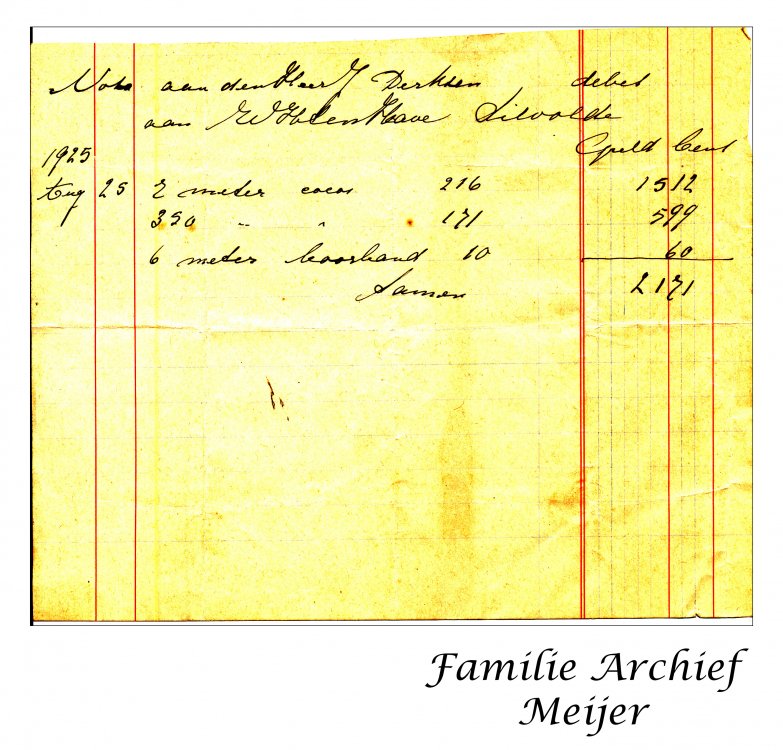 Nota aan den Heer J Derksen debet
aan W H ten Have Silvolde
1925 Guld Cent
Aug 25 7 meter cocos 216 1512
350 " " 171 599
6 meter boorband 10 60
Samen 2171
Familie Archief
Meijer